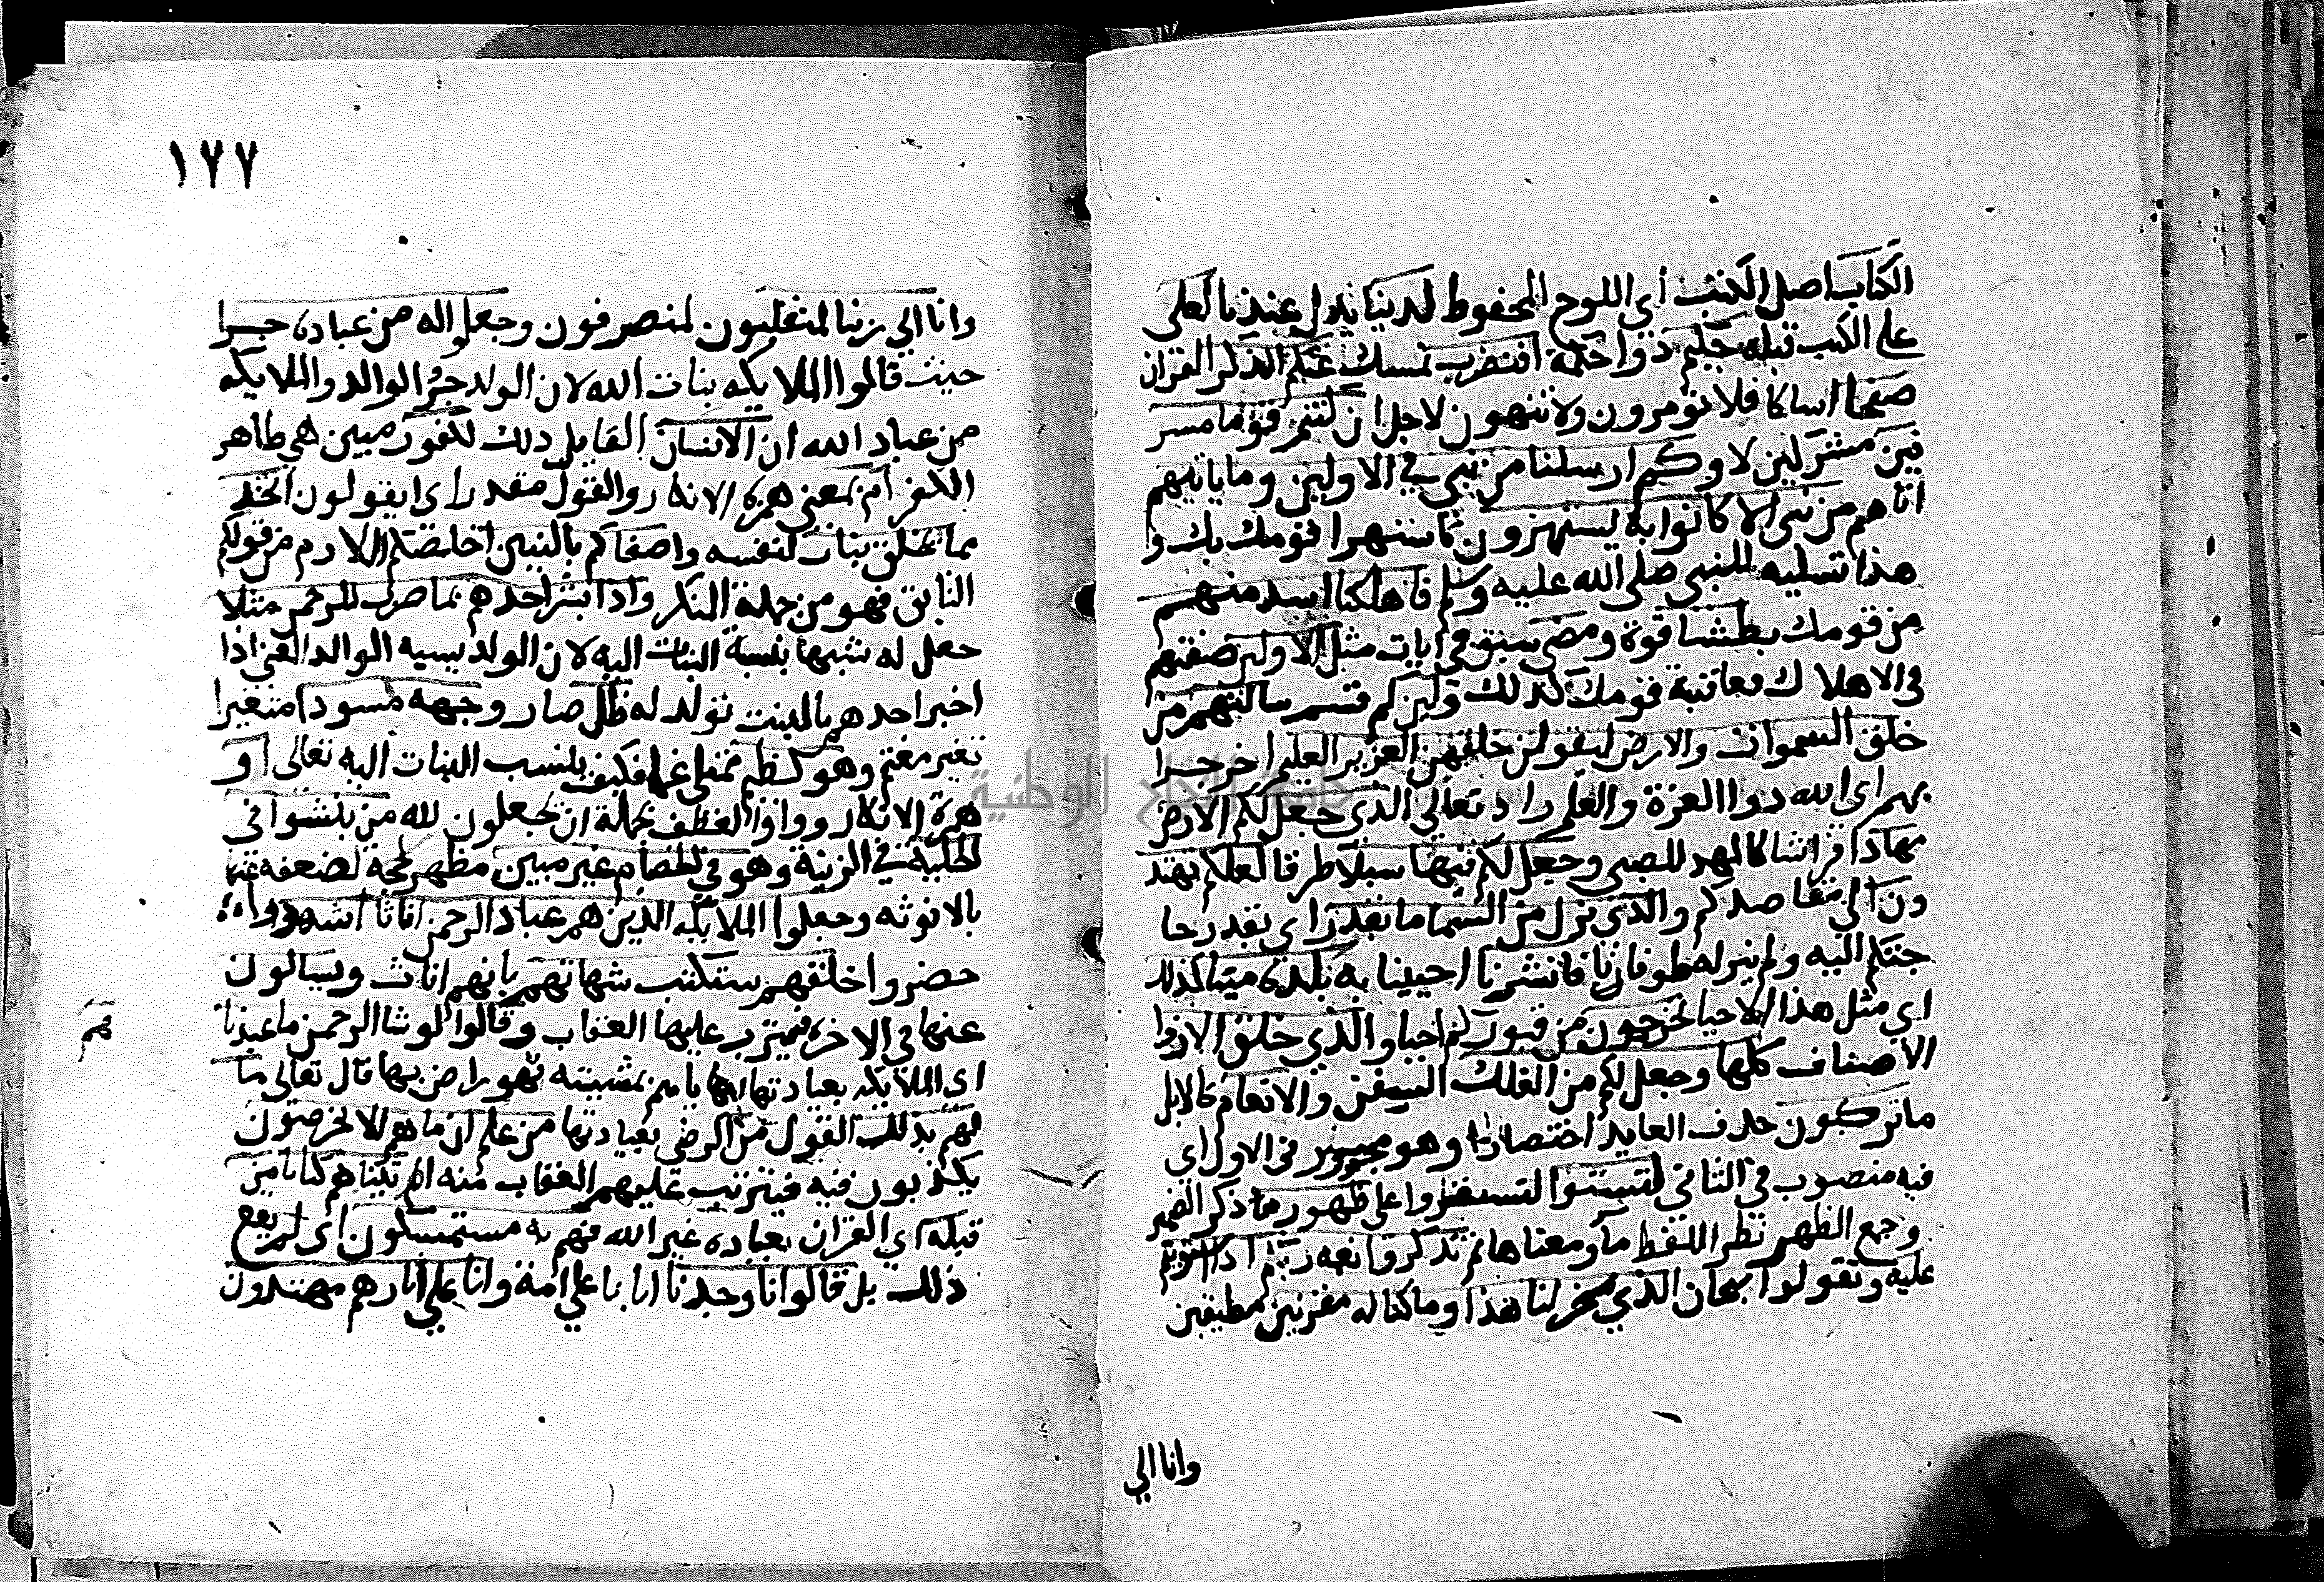 الكتاب اصل الكتب أي اللوح المحفوظ لدينا بدل عندنا لعلي
على الكتب قبله حكيم ذوا حكمة افنضرب نمسك عنكم الذكر القران
صفحا امساكا فلا تومرون ولا تنهون لاجل ان كنتم قوما مسر
فين مشركين لا وكم ارسلنا من نبي في الاولين وما ياتيهم
اتاهم من نبي الا كانوا به يستهزون كاستهزا قومك بك و
هذا تسليه للنبي صلى الله عليه وسلم فاهلكنا اشد منهم
من قومك بطشا قوة ومضى سبق في ايات مثل الاولين صفتهم
في الاهلاك فعاقبة قومك كذلك ولين لم قسم سالتهم من
خلق السموات والارض ليقولن خلقهن العزيز العليم اخر جوا
بهم اى الله ذوا العزة والعلم زاد تعالى الذي جعل لكم الارض
مهادا فراشا كالمهد للصبي وجعل لكم فيها سبلا طرقا لعلكم تهتد
ون الى مقاصدكم والذي نزل من السما ما بقدر اي بقدر حا
جتكم اليه ولم ينزله طوفانا فانشرنا احيينا به بلدة ميتا كذلك
اي مثل هذا الاحيا تخرجون من قبوركم احيا والذي خلق الازوا
الاصناف كلها وجعل لكم من الفلك السفن والانعام كالابل
ماتركبون حذف العايد اختصارا وهو مجرور في الاول اي
فيه منصوب في الثاني لتستوا لتستقروا على ظهوره ذكر الضمير
وجمع الظهر نظرا للفظ ما ومعناها ثم تذكروا نعمه ربكم اذا استويتم
عليه وتقولوا سبحان الذي سخر لنا هذا وما كنا له مقرنين مطيقين
وانا الي
١٧٧
وانا الي ربنا لمنقلبون لمنصرفون وجعلوا له من عباده جزا
حيث قالوا الملايكه بنات الله لان الولد جزؤ الوالد والملايكه
من عباد الله ان الانسان القايل ذلك لكفور مبين هي ظاهر
الكفر أم بمعنى همزة الانكار والقول مقدر اى ايقولون اتخذ
مما يخلق بنات لنفسه واصفاكم بالبنين اخلصكم اللازم من قولكم
السابق فهو من جملة المنكر واذا بشر احدهم بما ضرب للرحمن مثلا
جعل له شبها بنسبة البنات اليه لان الولد يشبه الوالد المعنى اذا
اخبر احدهم بالبنت تولد له ظل صار وجهه مسودا متغيرا
تغير مغتم وهو كظيم ممتلى غما فكيف ينسب البنات اليه تعالى أو
همزة الانكار وواو العطف بجملة ان يجعلون لله من ينشوا في
الحلية في الزينة وهو في الخصام غير مبين مظهر لحجة لضعفه عنها
بالانوثه وجعلوا الملايكه الذين هم عباد الرحمن اناثا أشهدوا
حضروا خلقهم ستكتب شهاتهم بانهم اناث ويسالون
عنها في الاخرة فيترب عليها العقاب وقالوا لوشا الرحمن ما عبدنا
هم
اى الملايكه بعبادتها اياها بمشيته فهو راض بها قال تعالى ما
لهم بذلك القول من الرضى بعبادتها من علم ان ما هم الا يخرصون
يكذبون فيه فيترتب عليهم العقاب منه ام اتيناهم كتابا من
قبله اي القران بعباده غير الله فهم به مستمسكون اى لم يقع
ذلك بل قالوا انا وجدنا ابانا على امة وانا على اثارهم مهتدون